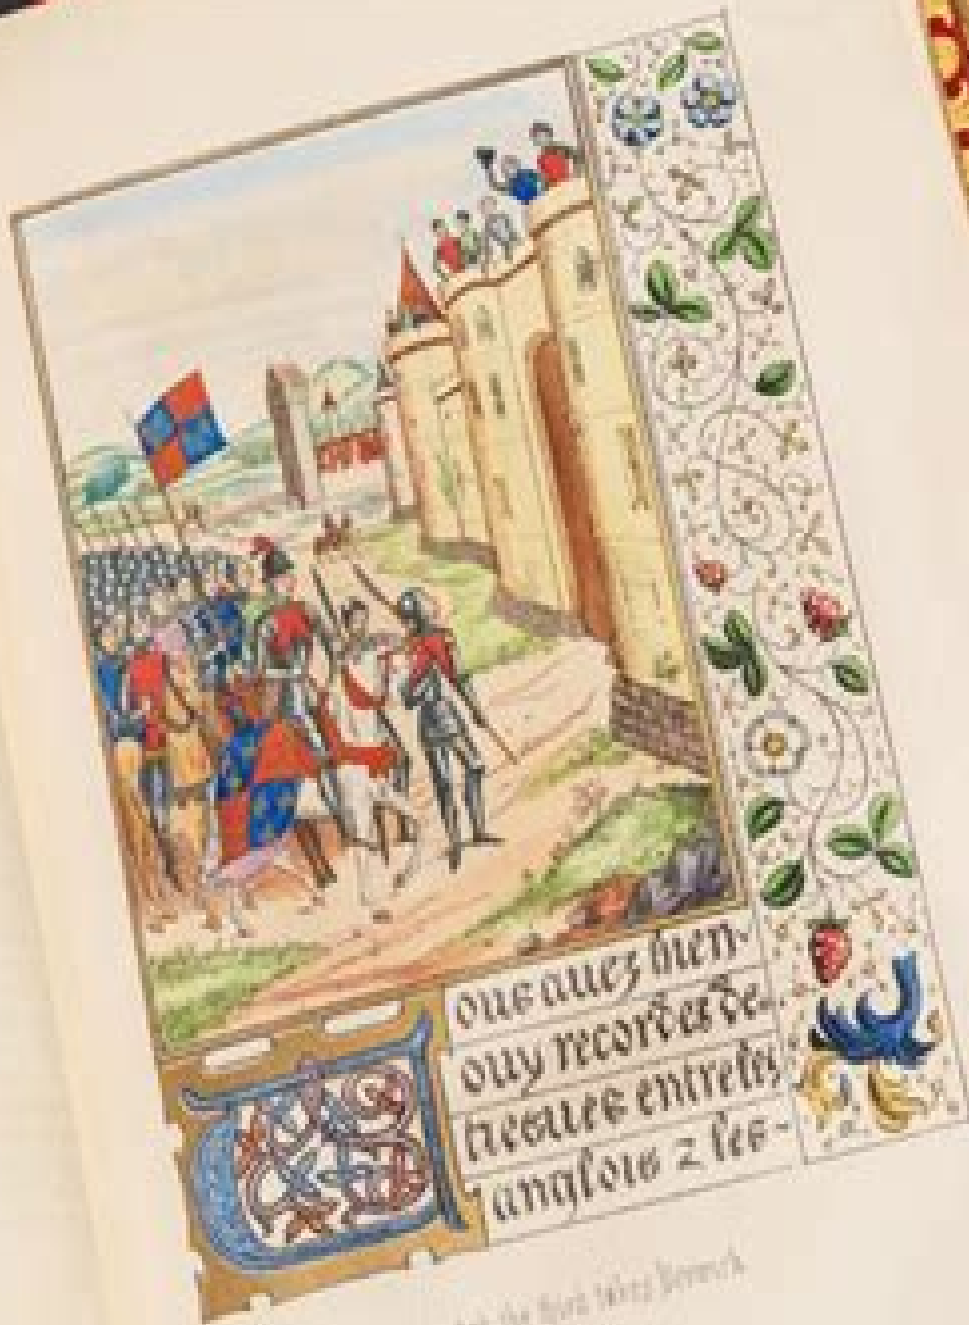 ous aues bien-
ouy recordes de-
trieues entreles
anglois z les-
the